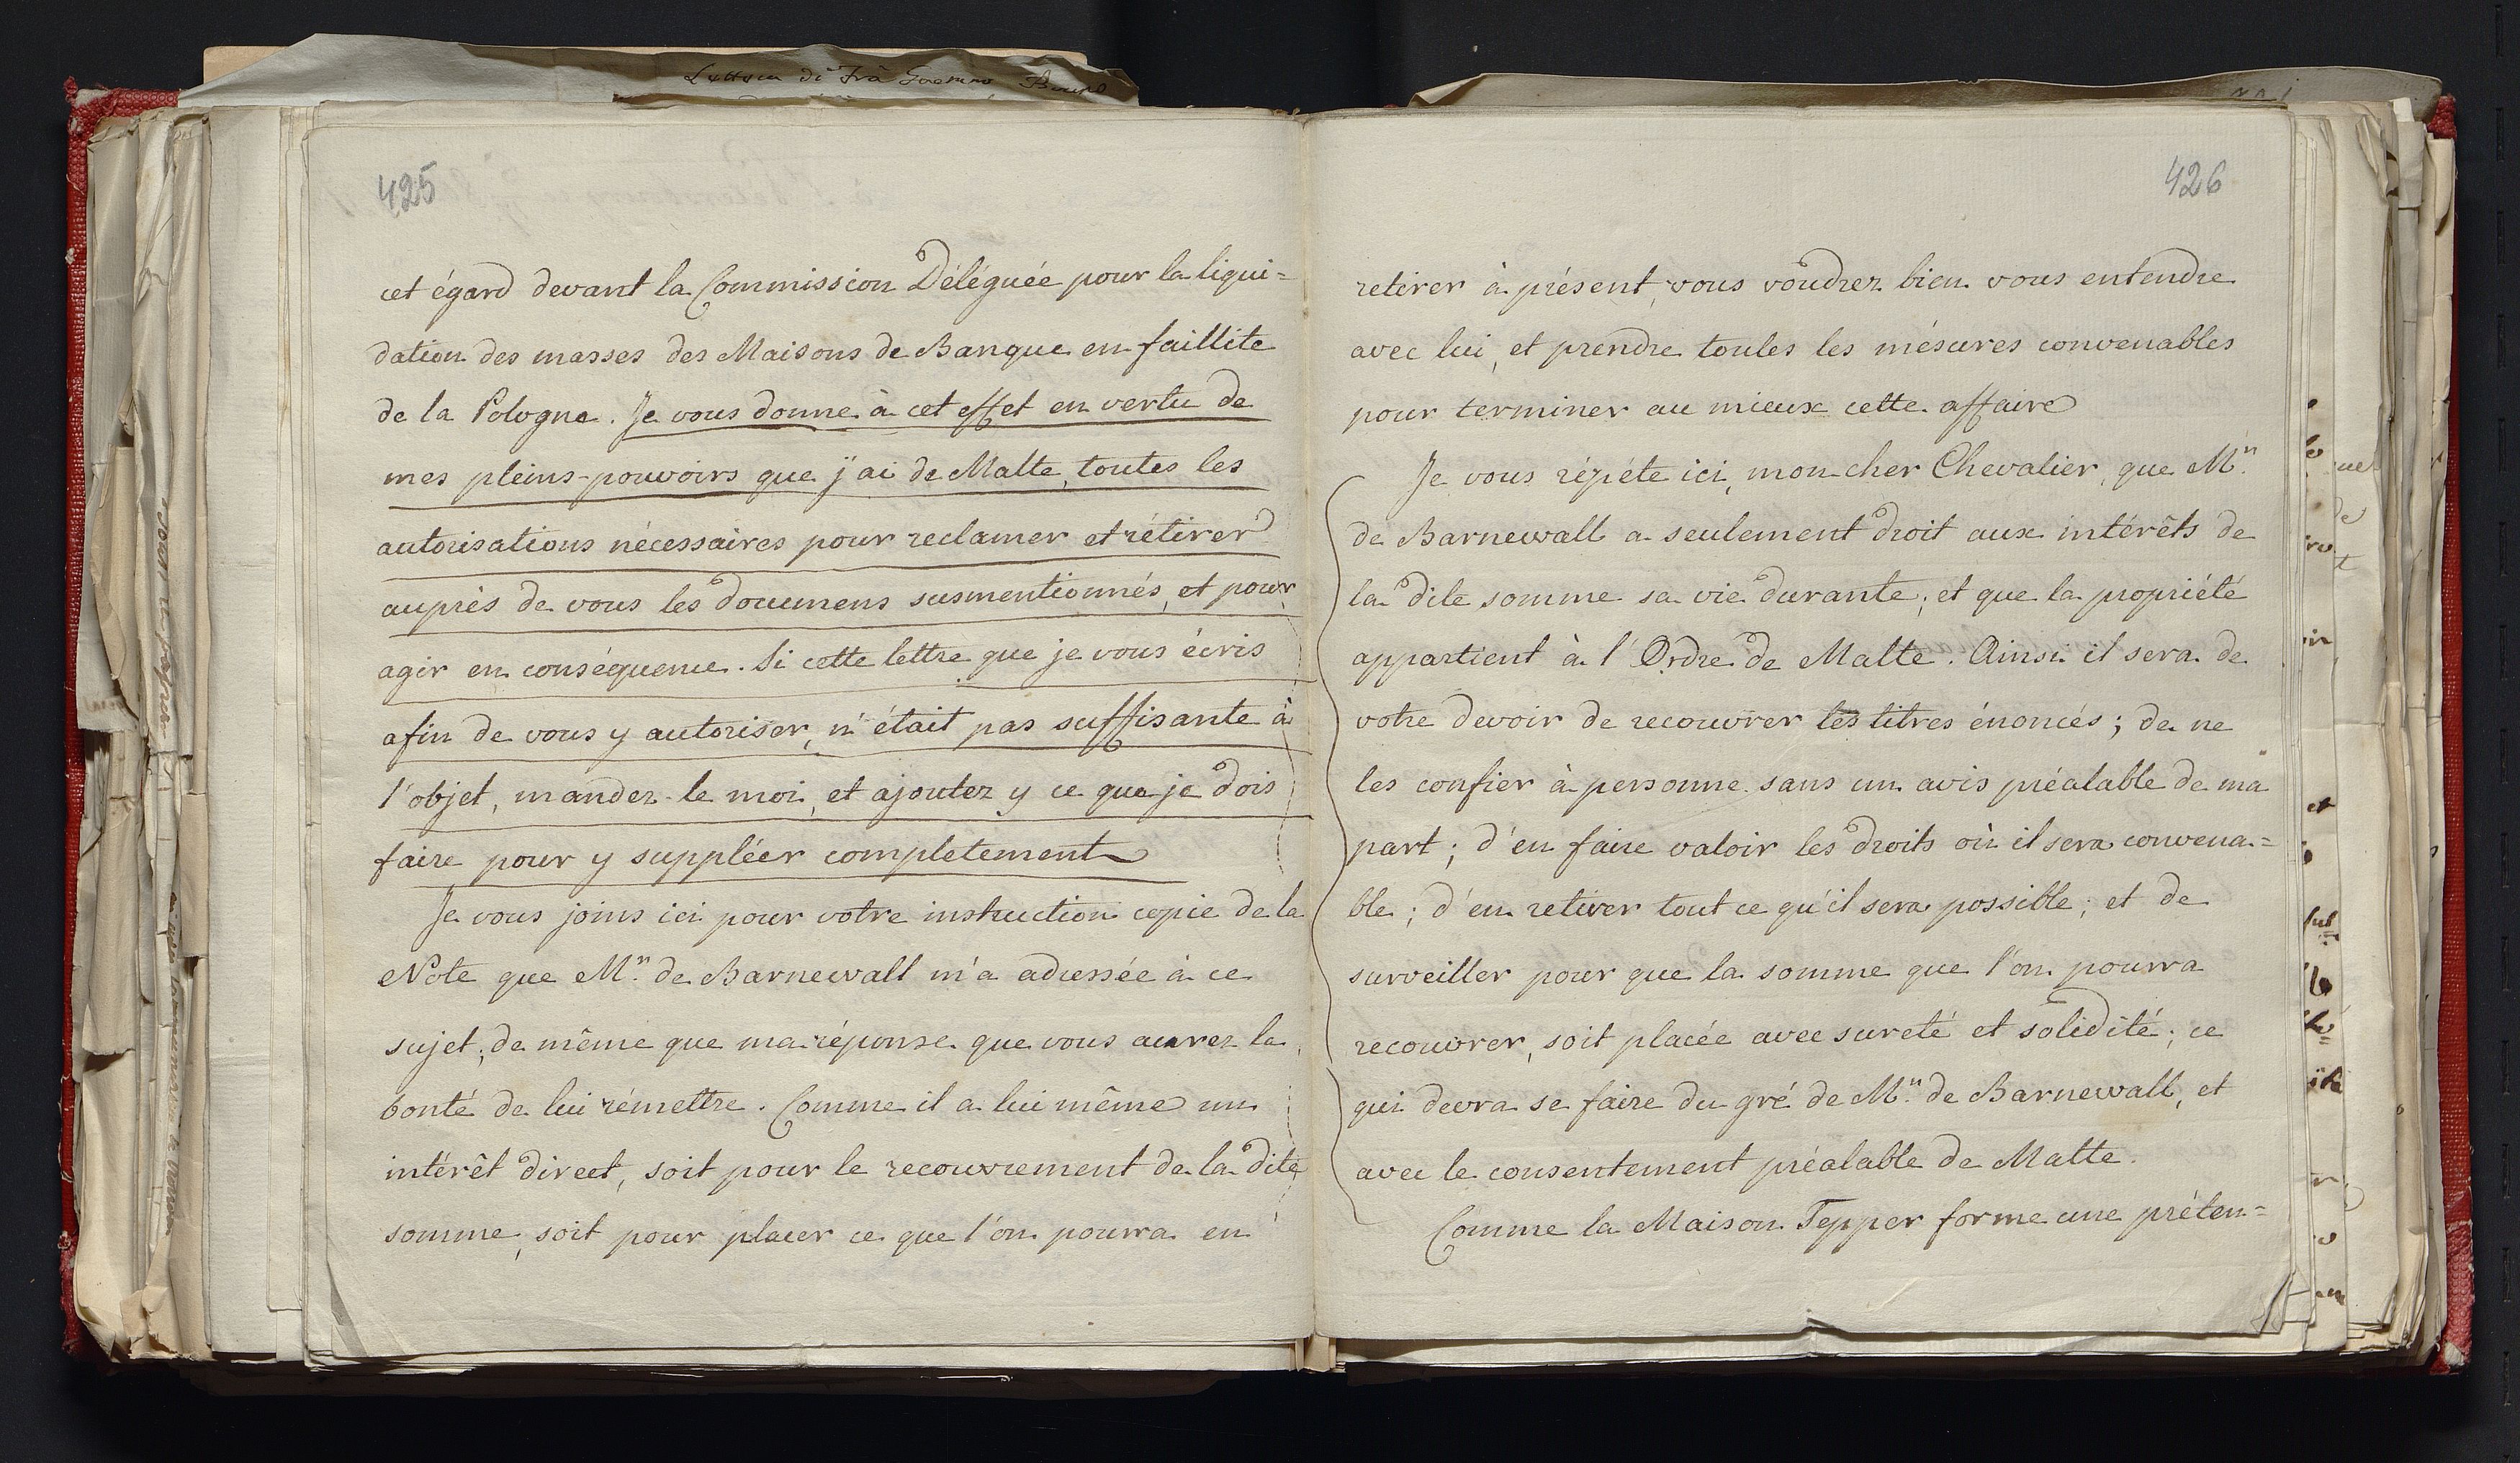 425
cet égard devant la Commission Déléguée pour la liqui=
dation des masses des Maisons de Banque en faillite
de la Pologne. Je vous donne à cet effet en vertu de
mes pleins-pouvoirs que j'ai de Malte, toutes les
autorisations nécessaires pour reclamer et rétirer
auprès de vous les documens susmentionnés, et pour
agir en conséquence. Si cette lettre que je vous écris
afin de vous y autoriser, n'était pas suffisante à
l'objet, mandez-le moi, et ajoutez y ce que je dois
faire pour y suppléer completement
Je vous joins ici pour votre instruction copie de la
Note que Mr. de Barnewall m'a adressée à ce
sujet, de même que ma réponse que vous aurez la
bonté de lui rémettre. Comme il a lui même un
intérêt direct, soit pour le recouvrement de la dite
somme, soit pour placer ce que l'on pourra en
426
retirer à présent, vous voudrez bien vous entendre
avec lui, et prendre toutes les mésures convenables
pour terminer au mieux cette affaire
Je vous répéte ici, mon cher Chevalier, que Mr.
de Barnewall a seulement droit aux intérêts de
la dite somme sa vie durante; et que la propriété
appartient à l'Ordre de Malte. Ainsi il sera de
votre devoir de recouvrer les titres énoncés; de ne
les confier à personne sans un avis préalable de ma
part; d'en faire valoir les droits où il sera convena=
ble; d'en retirer tout ce qu'il sera possible; et de
surveiller pour que la somme que l'on pourra
recouvrer, soit placée avec sureté et solidité; ce
qui devra se faire du gré de Mr. de Barnewall, et
avec le consentement préalable de Malte.
Comme la Maison Tepper forme une préten=